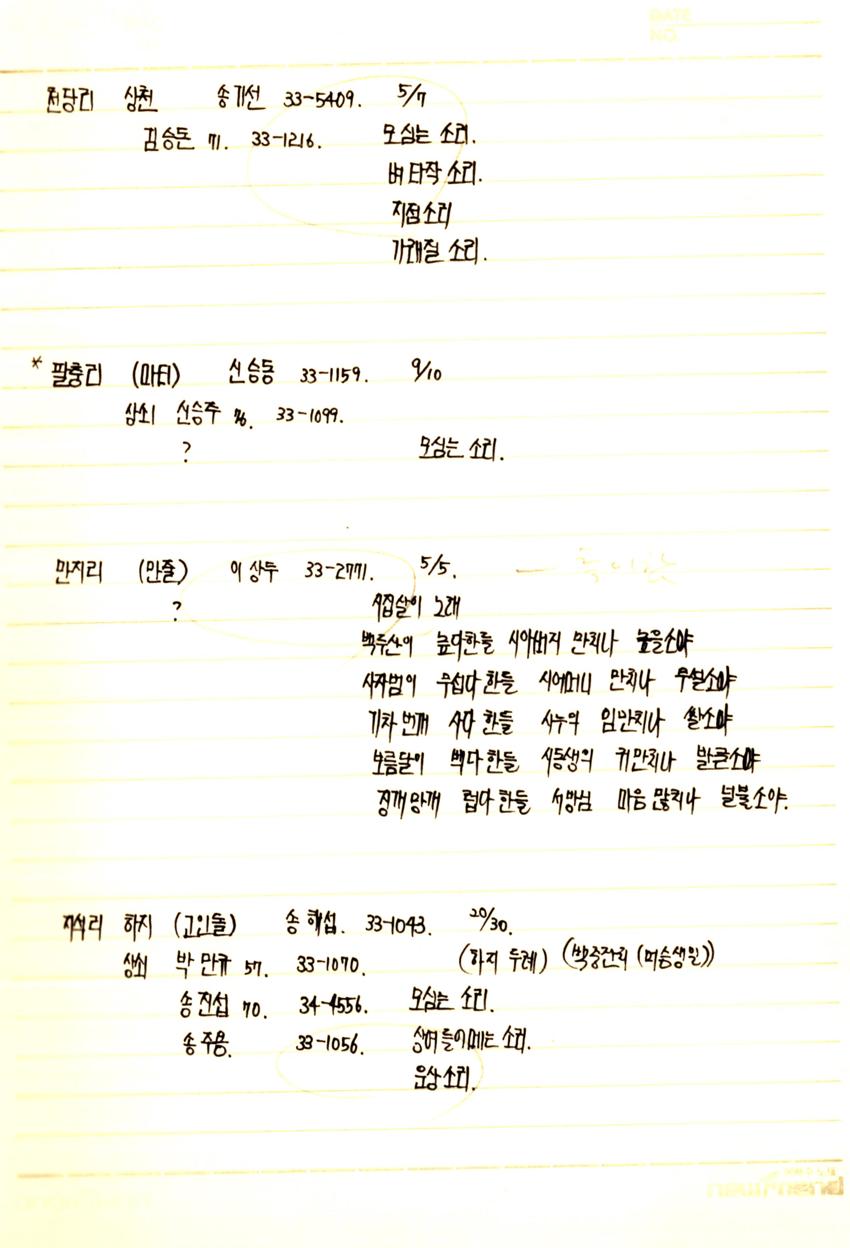 전당리 상천 송기선 33-5409. 5/7
김승돈 71. 33-1216. 모심는 소리.
벼 타작 소리.
지점소리
가래질 소리.
* 팔충리 (마티) 신승동 33-1159. 9/10
상쇠 신승주 76. 33-1099.
? 모심는 소리.
만지리 (만줄) 이상두 33-2771. 5/5.
? 시집살이 노래
백두산이 높다한들 시아버지 만치나 높을소야
사자범이 무섭다 한들 시어머니 만치나 무설소야
기차 번개 싸다 한들 시누의 입만치나 쌀소야
보름달이 박다 한들 시동생의 귀만치나 발큰소야
징개 망개 럽다 한들 서방님 마음 많치나 널불소야.
지석리 하지 (고인돌) 송해섭. 33-1043. 20/30.
상쇠 박만규 57. 33-1070. (하지 두레) (백중잔치 (머슴생일))
송진섭 70. 34-4556. 모심는 소리.
송주용. 33-1056. 상여 들어메는 소리.
운상소리.